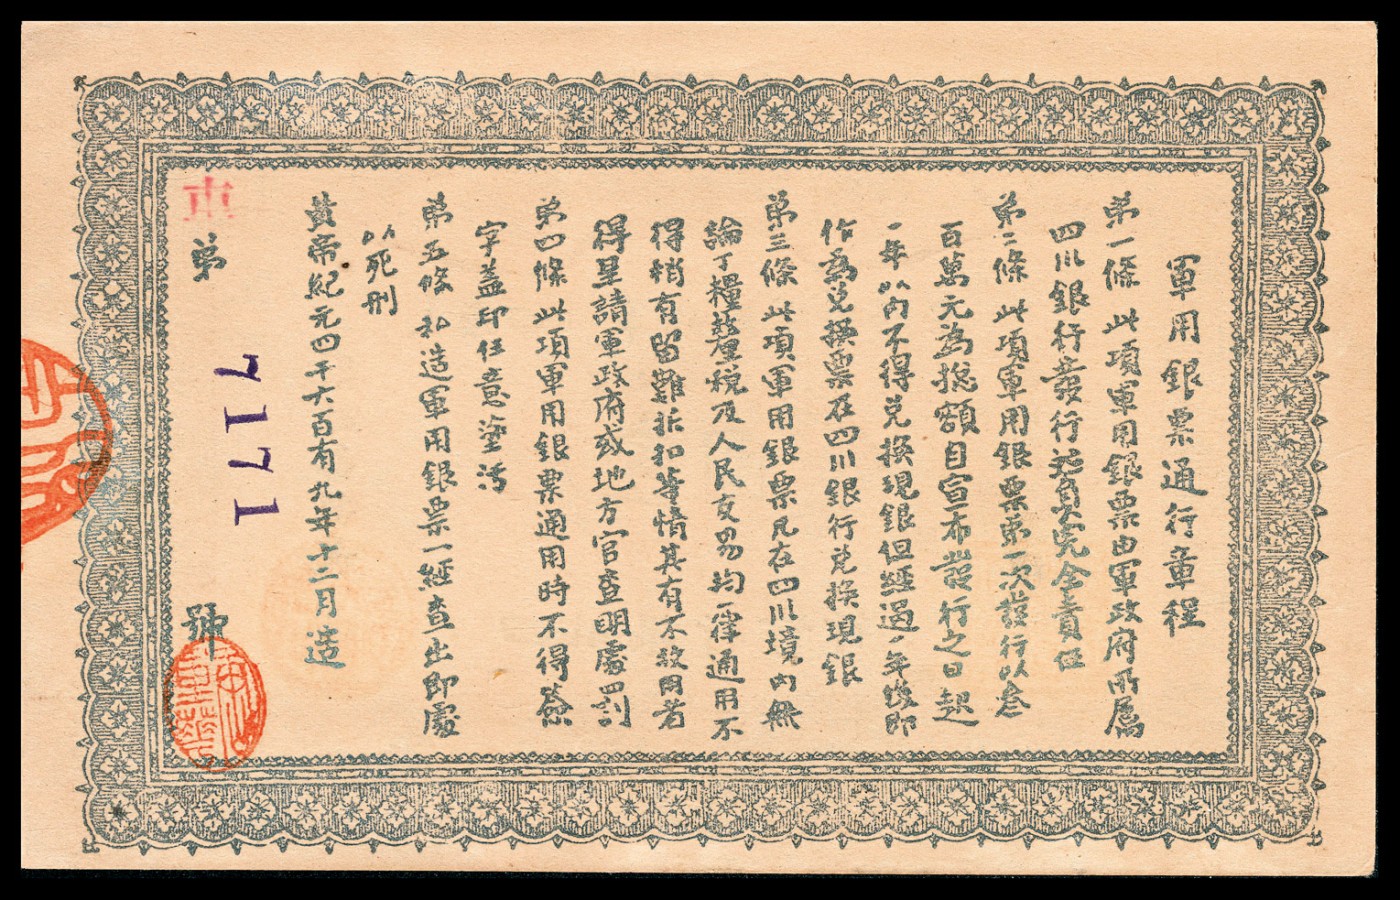 軍用銀票通行章程
第一條 此項軍用銀票由軍政府所屬
四川銀行發行並負完全責任
第二條 此項軍用銀票第一次發行以叁
百萬元為總額自宣布發行之日起
一年以內不得兌換現銀但經過一年後即
作為兌換票在四川銀行兌換現銀
第三條 此項軍用銀票凡在四川境內無
論丁糧釐稅及人民交易均一律通用不
得稍有留難折扣等情其有不收用者
得呈請軍政府或地方官查明處罰
第四條 此項軍用銀票通用時不得
字蓋印任意塗污
第五條 私造軍用銀票一經查出即處
以死刑
黃帝紀元四千六百有九年十二月造
第 7171 號